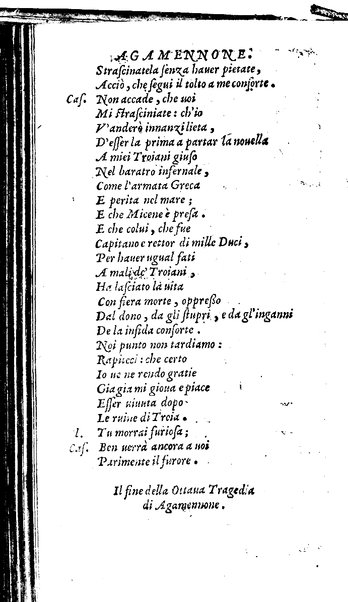 AGAMENNONE.
Strascinatela senza hauer pietate,
Acciò, che segui il tolto a me consorte.
Cas. Non accade, che uoi
Mi strasciniate: ch'io
V'anderò innanzi lieta,
D'esser la prima a partar la nouella
A mici Troiani giuso
Nel baratro infernale,
Come l'armata Greca
E perita nel mare;
E che Micene è presa.
E che colui, che fue
Capitano e rector di mille Duci,
Per hauer ugual fati
A mali de' Troiani,
Ha lasciato la uita
Con fiera morte, oppresso
Dal dono, da gli stupri, e da gl'inganni
De la infida consorte.
Noi punto non tardiamo:
Rapitеci: che certo
Io ue ne rendo gratie
Gia gia mi gioua e piace
Esser uiuuta dopo
Le ruine di Troia.
l. Tu morrai furiosa;
Cas. Ben uerrà ancora a uoi
Parimente il furore.
Il fine della Ottaua Tragedia
di Agamennone.